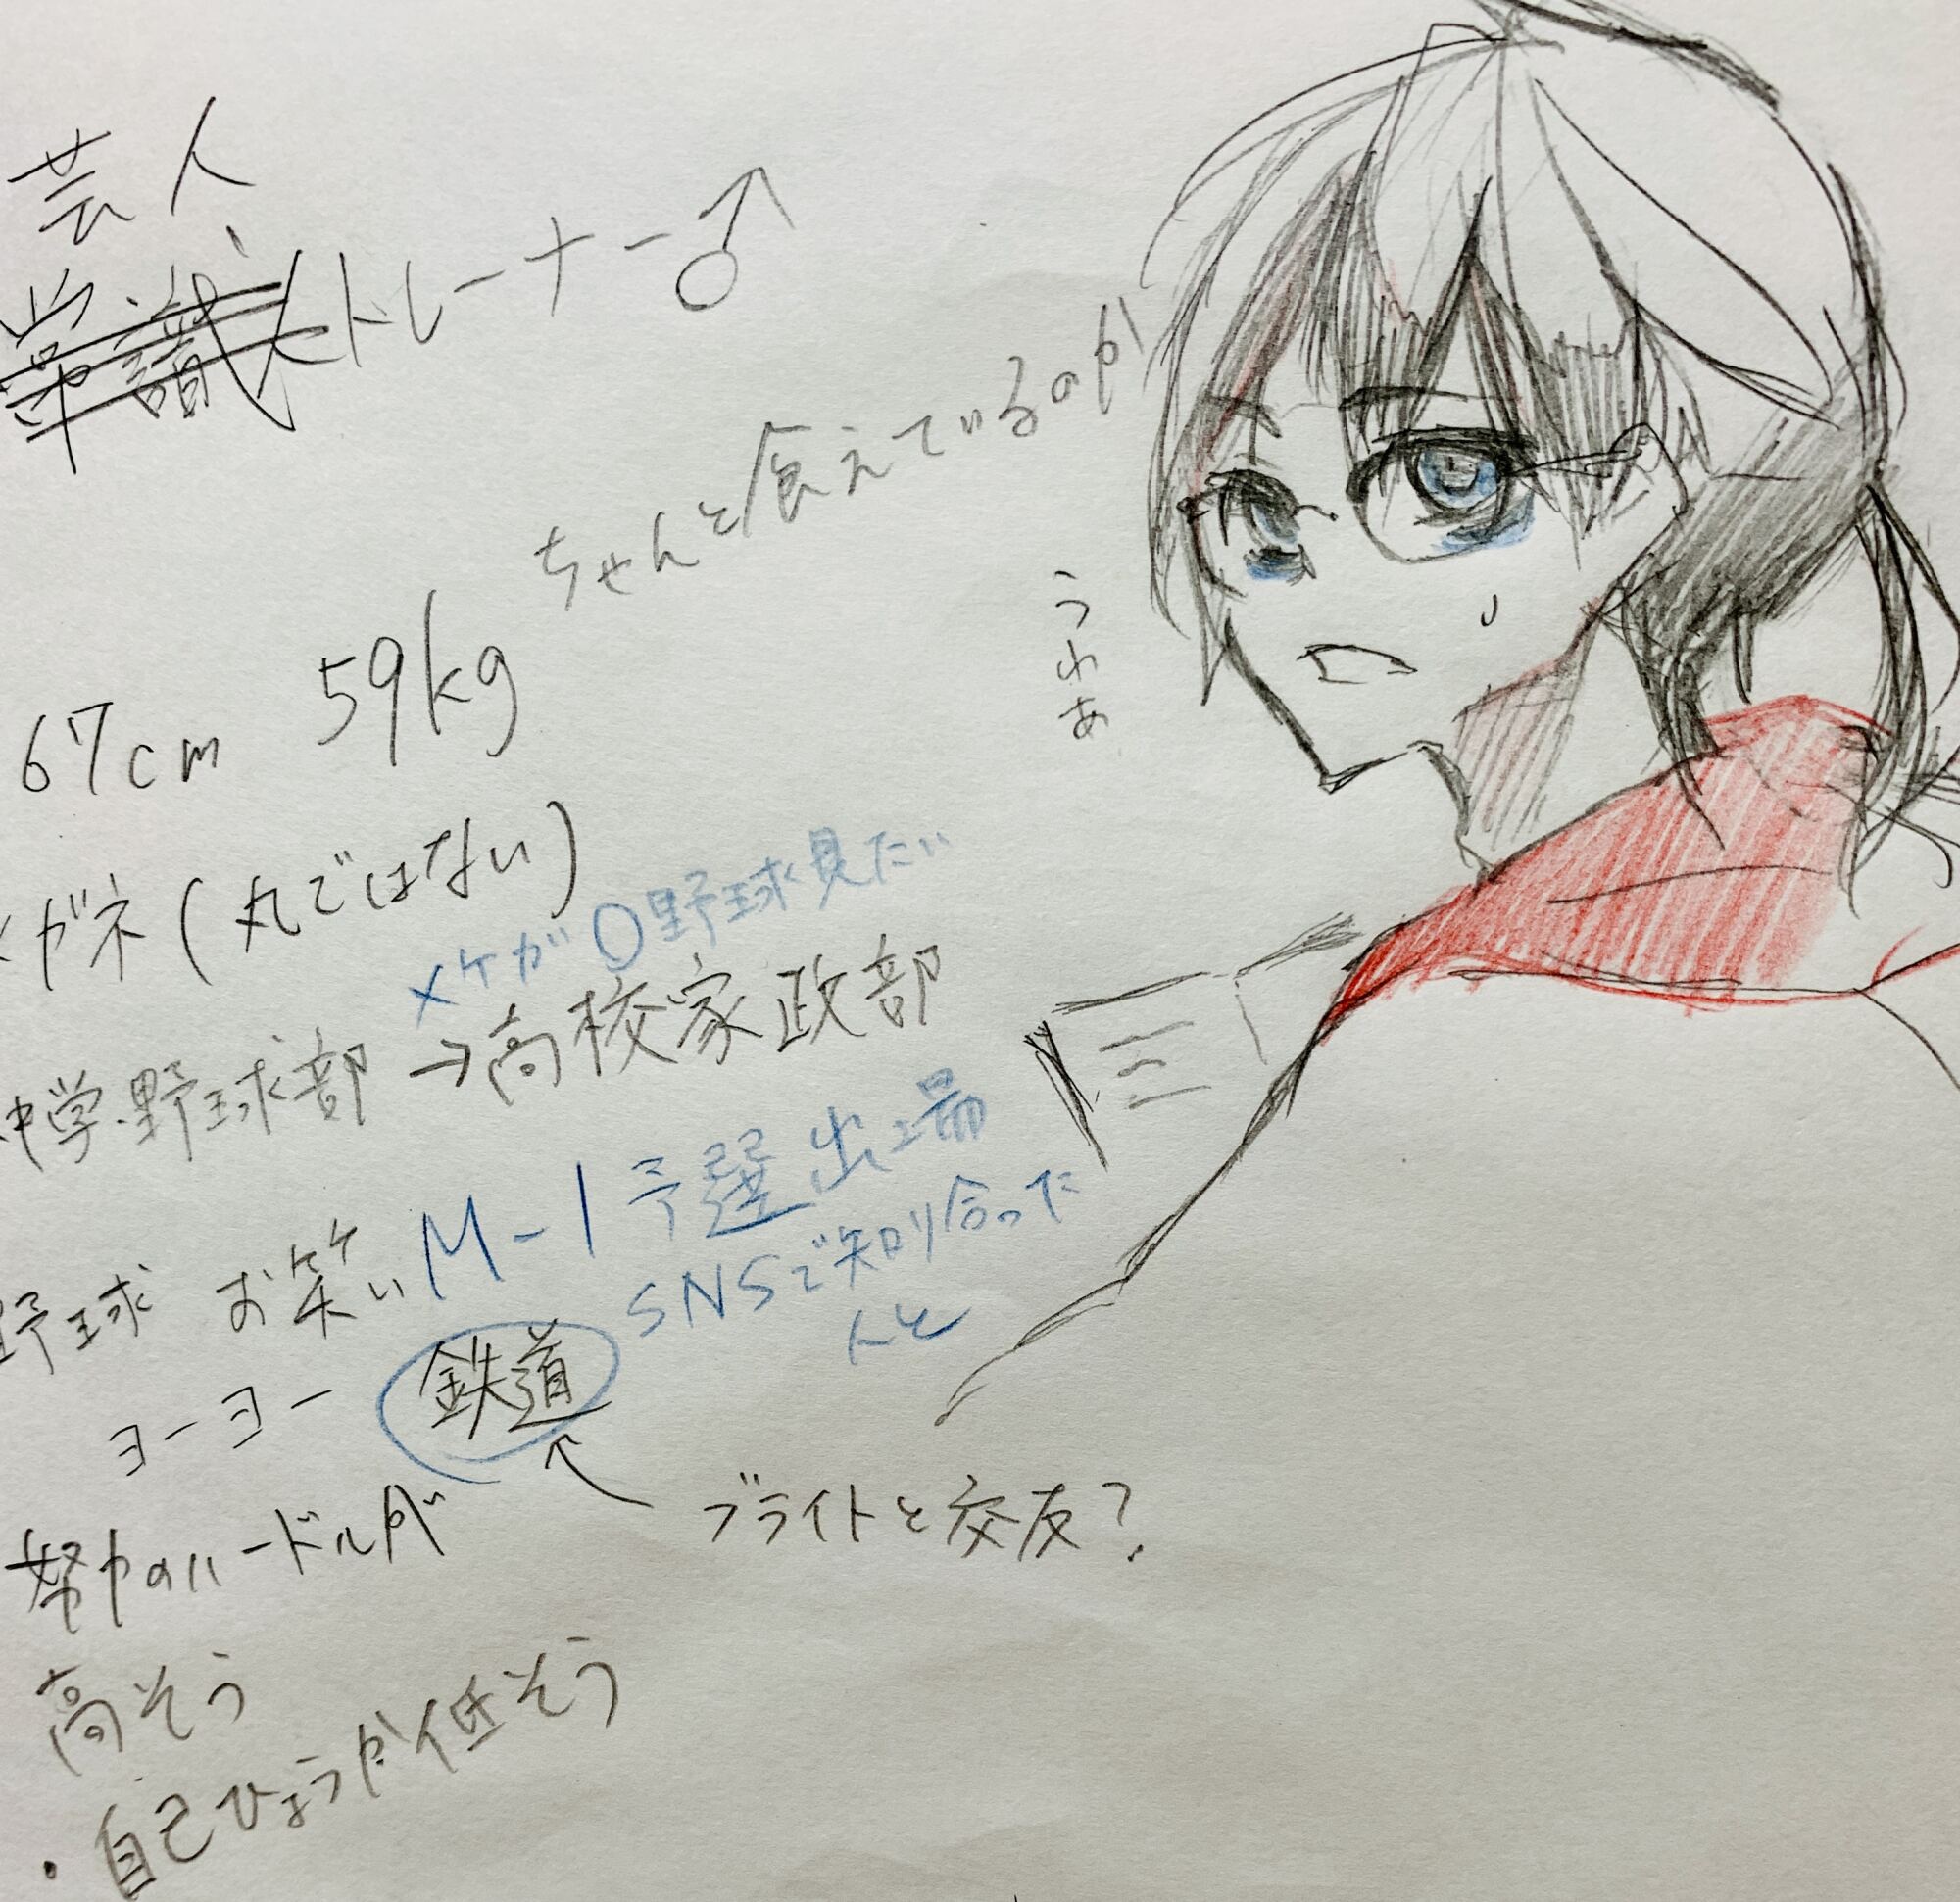 芸人
常識人トレーナー♂
ちゃんと食えているのか
67cm 59kg
うわぁ
メガネ(丸ではない)
×ケガ ○野球見たい
中学野球部→高校家政部
野球 お笑い M-1予選出場
SNSで知り合った
人と
ヨーヨー 鉄道
ブライトと交友?
努力のハードルが
高そう
・自己ひょうか低そう